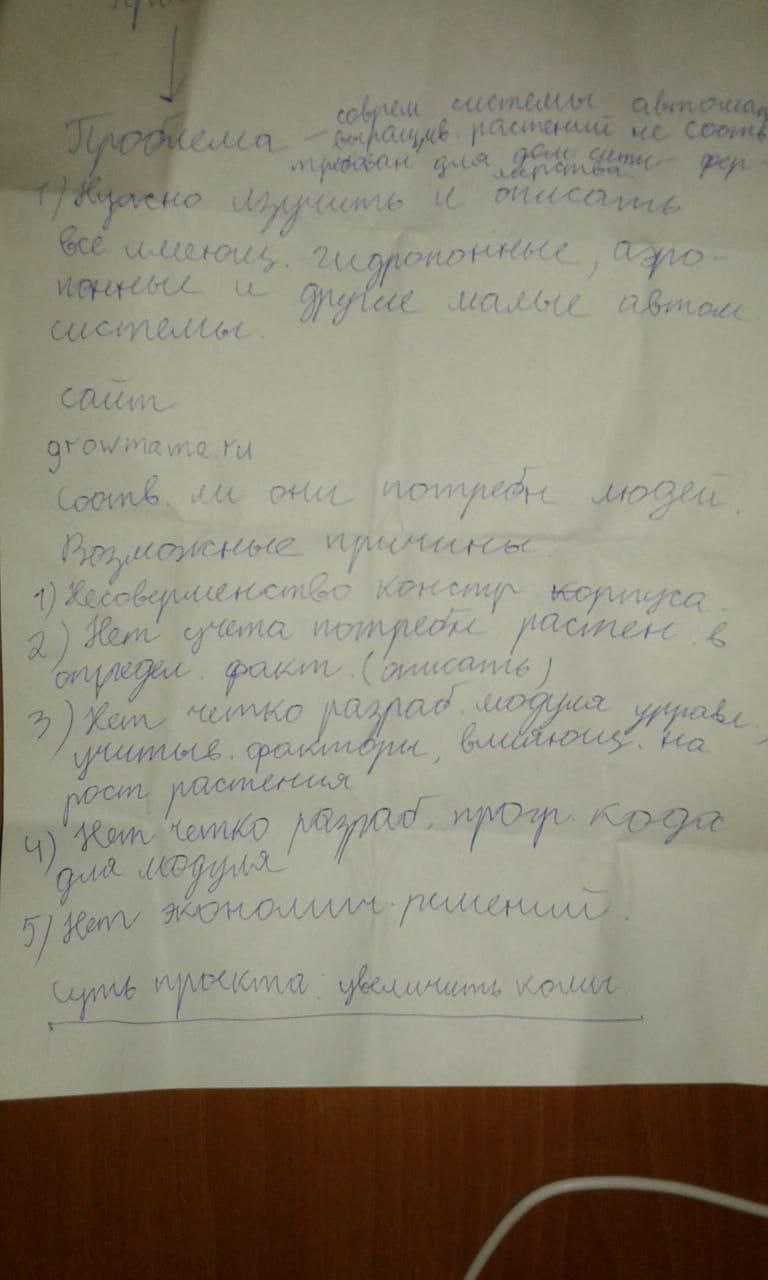 Проблема – соврем системы автомат
выращив. растений не соотв
требован для дом сити – фер-
мерства
1) Нужно изучить и описать
все имеющ. гидропонные, аэро-
понные и другие малые автом
системы.
сайт
growmama.ru
Соотв. ли они потребн людей.
Возможные причины
1) Несовершенство констр корпуса.
2) Нет учета потребн растен. в
определ. факт. (описать)
3) Нет четко разраб. модуля управл.,
учитыв. факторы, влияющ. на
рост растения
4) Нет четко разраб. прогр. кода
для модуля
5) Нет экономич. решений.
Суть проекта: увеличить колич